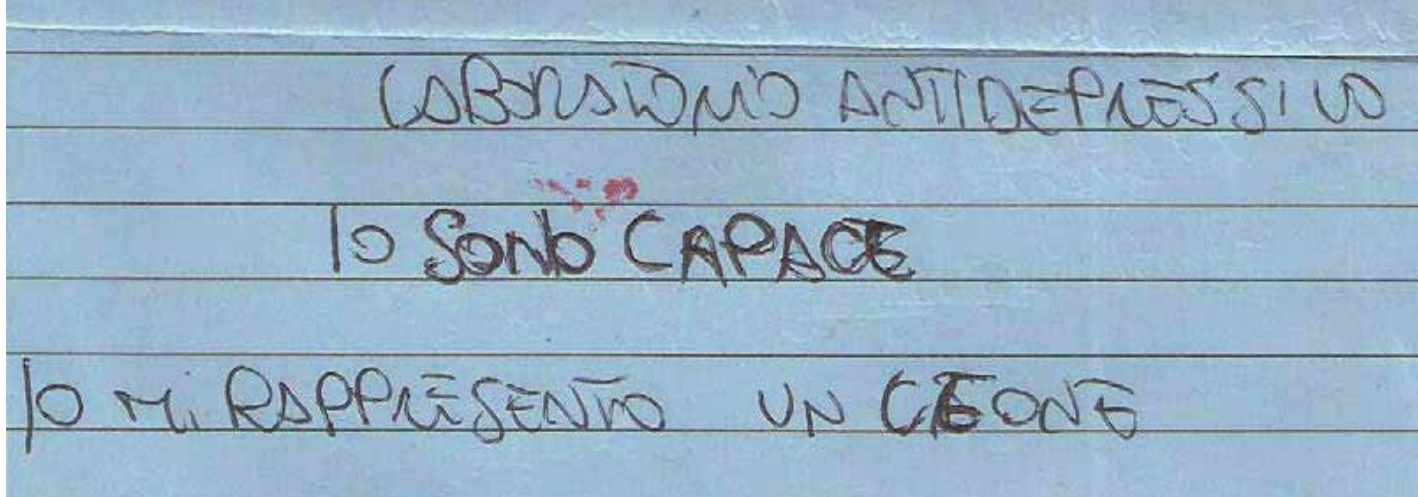 LABORATORIO ANTIDEPRESSIVO
IO SONO CAPACE
IO MI RAPPRESENTO UN LEONE